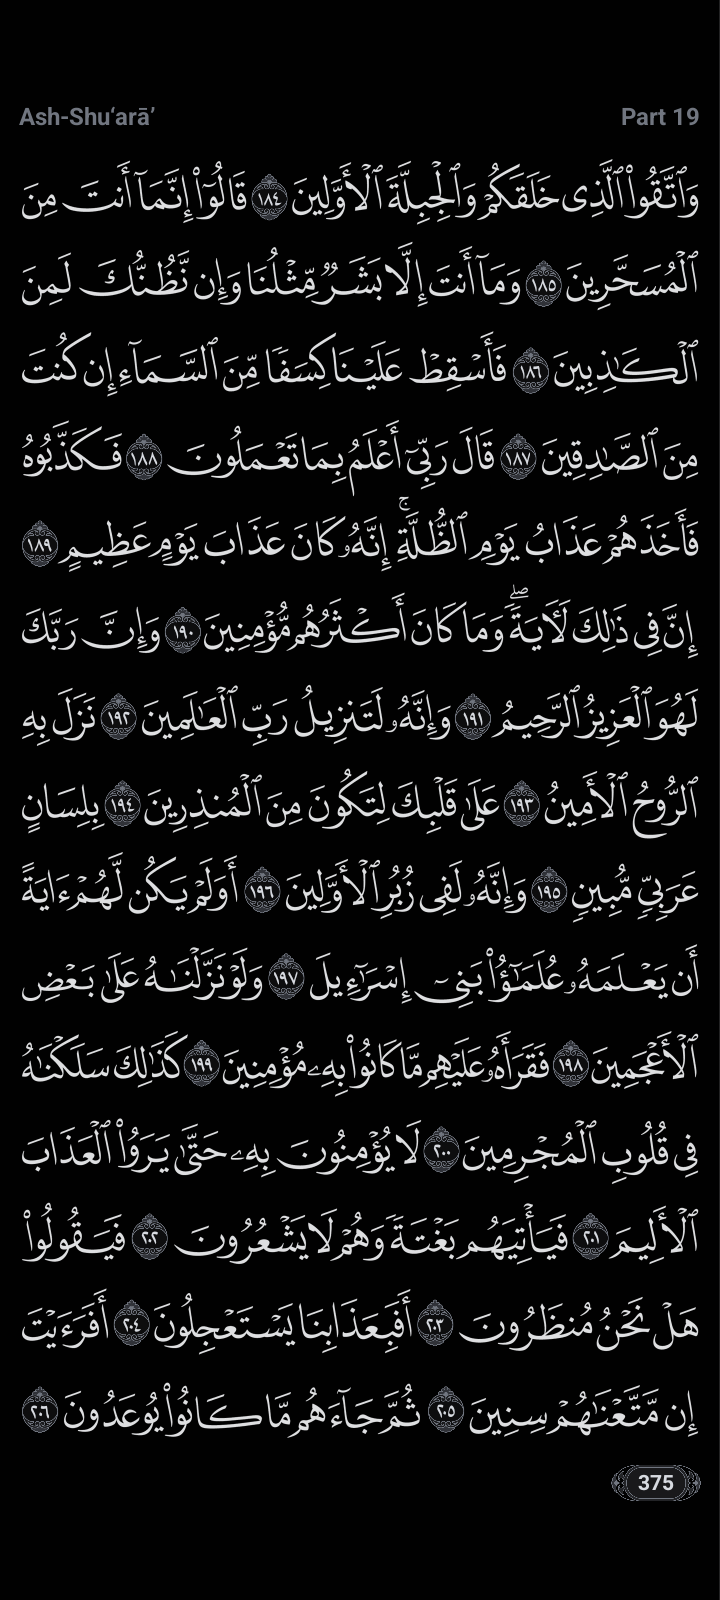 Ash-Shu‘arā’
Part 19
وَٱتَّقُوا۟ ٱلَّذِى خَلَقَكُمْ وَٱلْجِبِلَّةَ ٱلْأَوَّلِينَ ١٨٤ قَالُوٓا۟ إِنَّمَآ أَنتَ مِنَ
ٱلْمُسَحَّرِينَ ١٨٥ وَمَآ أَنتَ إِلَّا بَشَرٌ مِّثْلُنَا وَإِن نَّظُنُّكَ لَمِنَ
ٱلْكَـٰذِبِينَ ١٨٦ فَأَسْقِطْ عَلَيْنَا كِسَفًا مِّنَ ٱلسَّمَآءِ إِن كُنتَ
مِنَ ٱلصَّـٰدِقِينَ ١٨٧ قَالَ رَبِّىٓ أَعْلَمُ بِمَا تَعْمَلُونَ ١٨٨ فَكَذَّبُوهُ
فَأَخَذَهُمْ عَذَابُ يَوْمِ ٱلظُّلَّةِ ۚ إِنَّهُۥ كَانَ عَذَابَ يَوْمٍ عَظِيمٍ ١٨٩
إِنَّ فِى ذَٰلِكَ لَـَٔايَةً ۖ وَمَا كَانَ أَكْثَرُهُم مُّؤْمِنِينَ ١٩٠ وَإِنَّ رَبَّكَ
لَهُوَ ٱلْعَزِيزُ ٱلرَّحِيمُ ١٩١ وَإِنَّهُۥ لَتَنزِيلُ رَبِّ ٱلْعَـٰلَمِينَ ١٩٢ نَزَلَ بِهِ
ٱلرُّوحُ ٱلْأَمِينُ ١٩٣ عَلَىٰ قَلْبِكَ لِتَكُونَ مِنَ ٱلْمُنذِرِينَ ١٩٤ بِلِسَانٍ
عَرَبِىٍّ مُّبِينٍ ١٩٥ وَإِنَّهُۥ لَفِى زُبُرِ ٱلْأَوَّلِينَ ١٩٦ أَوَلَمْ يَكُن لَّهُمْ ءَايَةً
أَن يَعْلَمَهُۥ عُلَمَـٰٓؤُا۟ بَنِىٓ إِسْرَٰٓءِيلَ ١٩٧ وَلَوْ نَزَّلْنَـٰهُ عَلَىٰ بَعْضِ
ٱلْأَعْجَمِينَ ١٩٨ فَقَرَأَهُۥ عَلَيْهِم مَّا كَانُوا۟ بِهِۦ مُؤْمِنِينَ ١٩٩ كَذَٰلِكَ سَلَكْنَـٰهُ
فِى قُلُوبِ ٱلْمُجْرِمِينَ ٢٠٠ لَا يُؤْمِنُونَ بِهِۦ حَتَّىٰ يَرَوُا۟ ٱلْعَذَابَ
ٱلْأَلِيمَ ٢٠١ فَيَأْتِيَهُم بَغْتَةً وَهُمْ لَا يَشْعُرُونَ ٢٠٢ فَيَقُولُوا۟
هَلْ نَحْنُ مُنظَرُونَ ٢٠٣ أَفَبِعَذَابِنَا يَسْتَعْجِلُونَ ٢٠٤ أَفَرَءَيْتَ
إِن مَّتَّعْنَـٰهُمْ سِنِينَ ٢٠٥ ثُمَّ جَآءَهُم مَّا كَانُوا۟ يُوعَدُونَ ٢٠٦
375